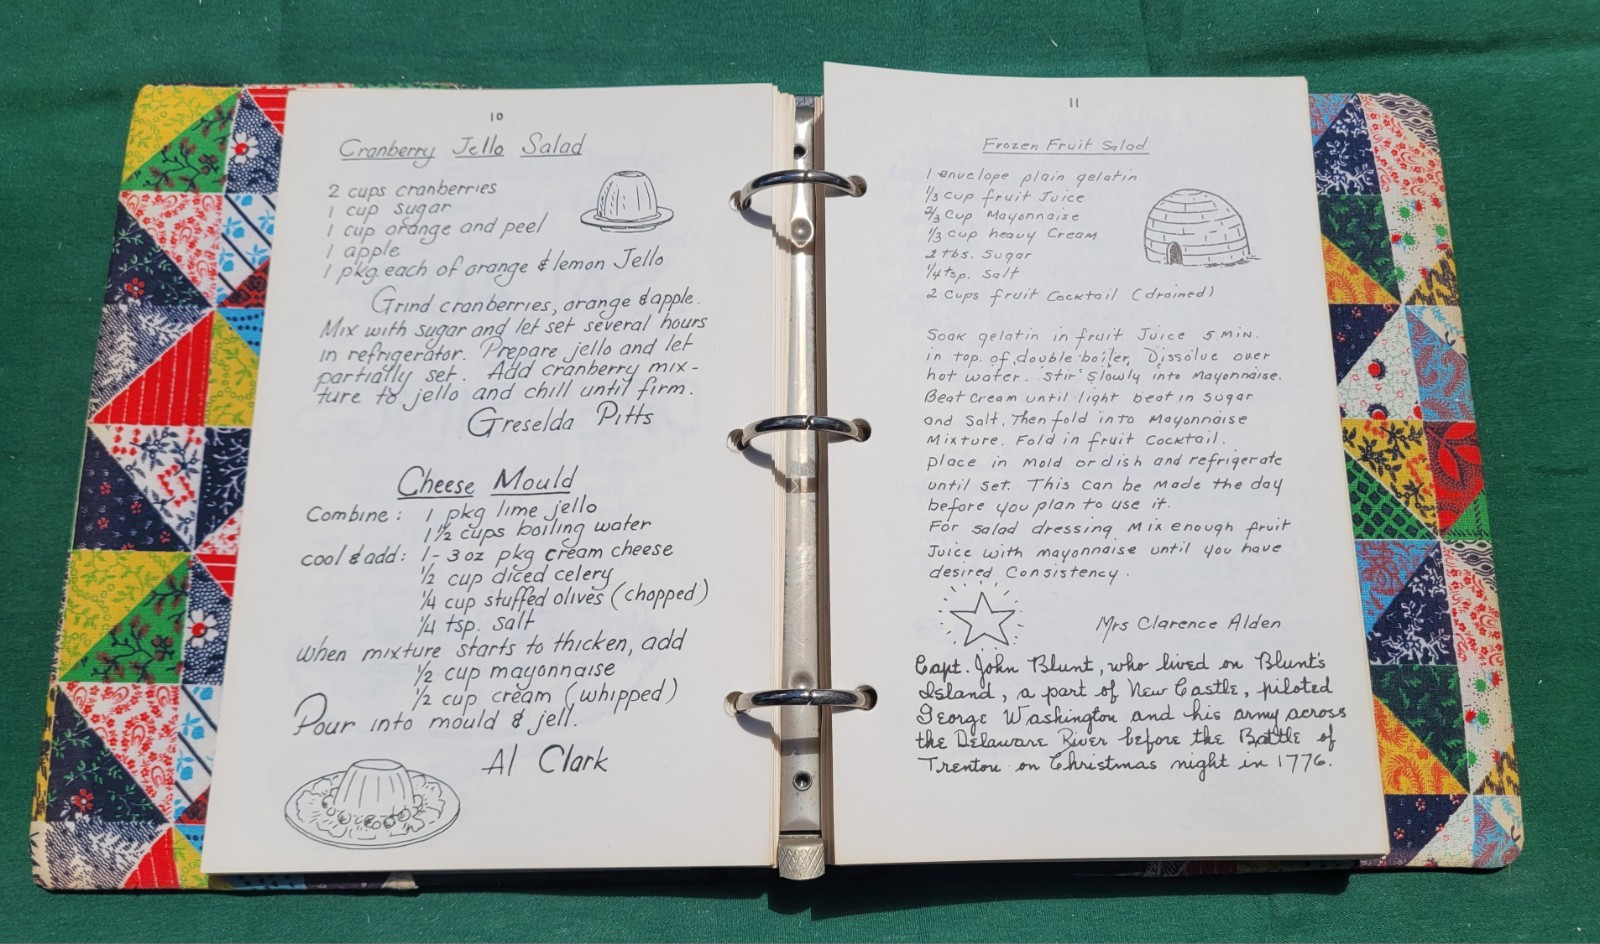 10
Cranberry Jello Salad
2 cups cranberries
1 cup sugar
1 cup orange and peel
1 apple
1 pkg each of orange & lemon Jello
Grind cranberries, orange & apple.
Mix with sugar and let set several hours
in refrigerator. Prepare jello and let
partially set. Add cranberry mix-
ture to jello and chill until firm.
Greselda Pitts
Cheese Mould
Combine: 1 pkg lime jello
1½ cups boiling water
cool & add: 1-3 oz pkg cream cheese
½ cup diced celery
¼ cup stuffed olives (chopped)
¼ tsp. salt
when mixture starts to thicken, add
½ cup mayonnaise
½ cup cream (whipped)
Pour into mould & jell.
Al Clark
11
Frozen Fruit Salad
1 envelope plain gelatin
⅓ cup fruit Juice
⅔ Cup Mayonnaise
⅓ cup heavy Cream
2 tbs. Sugar
¼ tsp. Salt
2 Cups fruit Cocktail (drained)
Soak gelatin in fruit Juice 5 min.
in top of double boiler, Dissolve over
hot water. Stir Slowly into Mayonnaise.
Beat Cream until light beat in Sugar
and Salt, Then fold into Mayonnaise
Mixture. Fold in fruit Cocktail.
place in Mold or dish and refrigerate
until set. This can be Made the day
before you plan to use it.
For salad dressing Mix enough fruit
Juice with mayonnaise until you have
desired Consistency.
Mrs Clarence Alden
Capt. John Blunt, who lived on Blunt's
Island, a part of New Castle, piloted
George Washington and his army across
the Delaware River before the Battle of
Trenton on Christmas night in 1776.